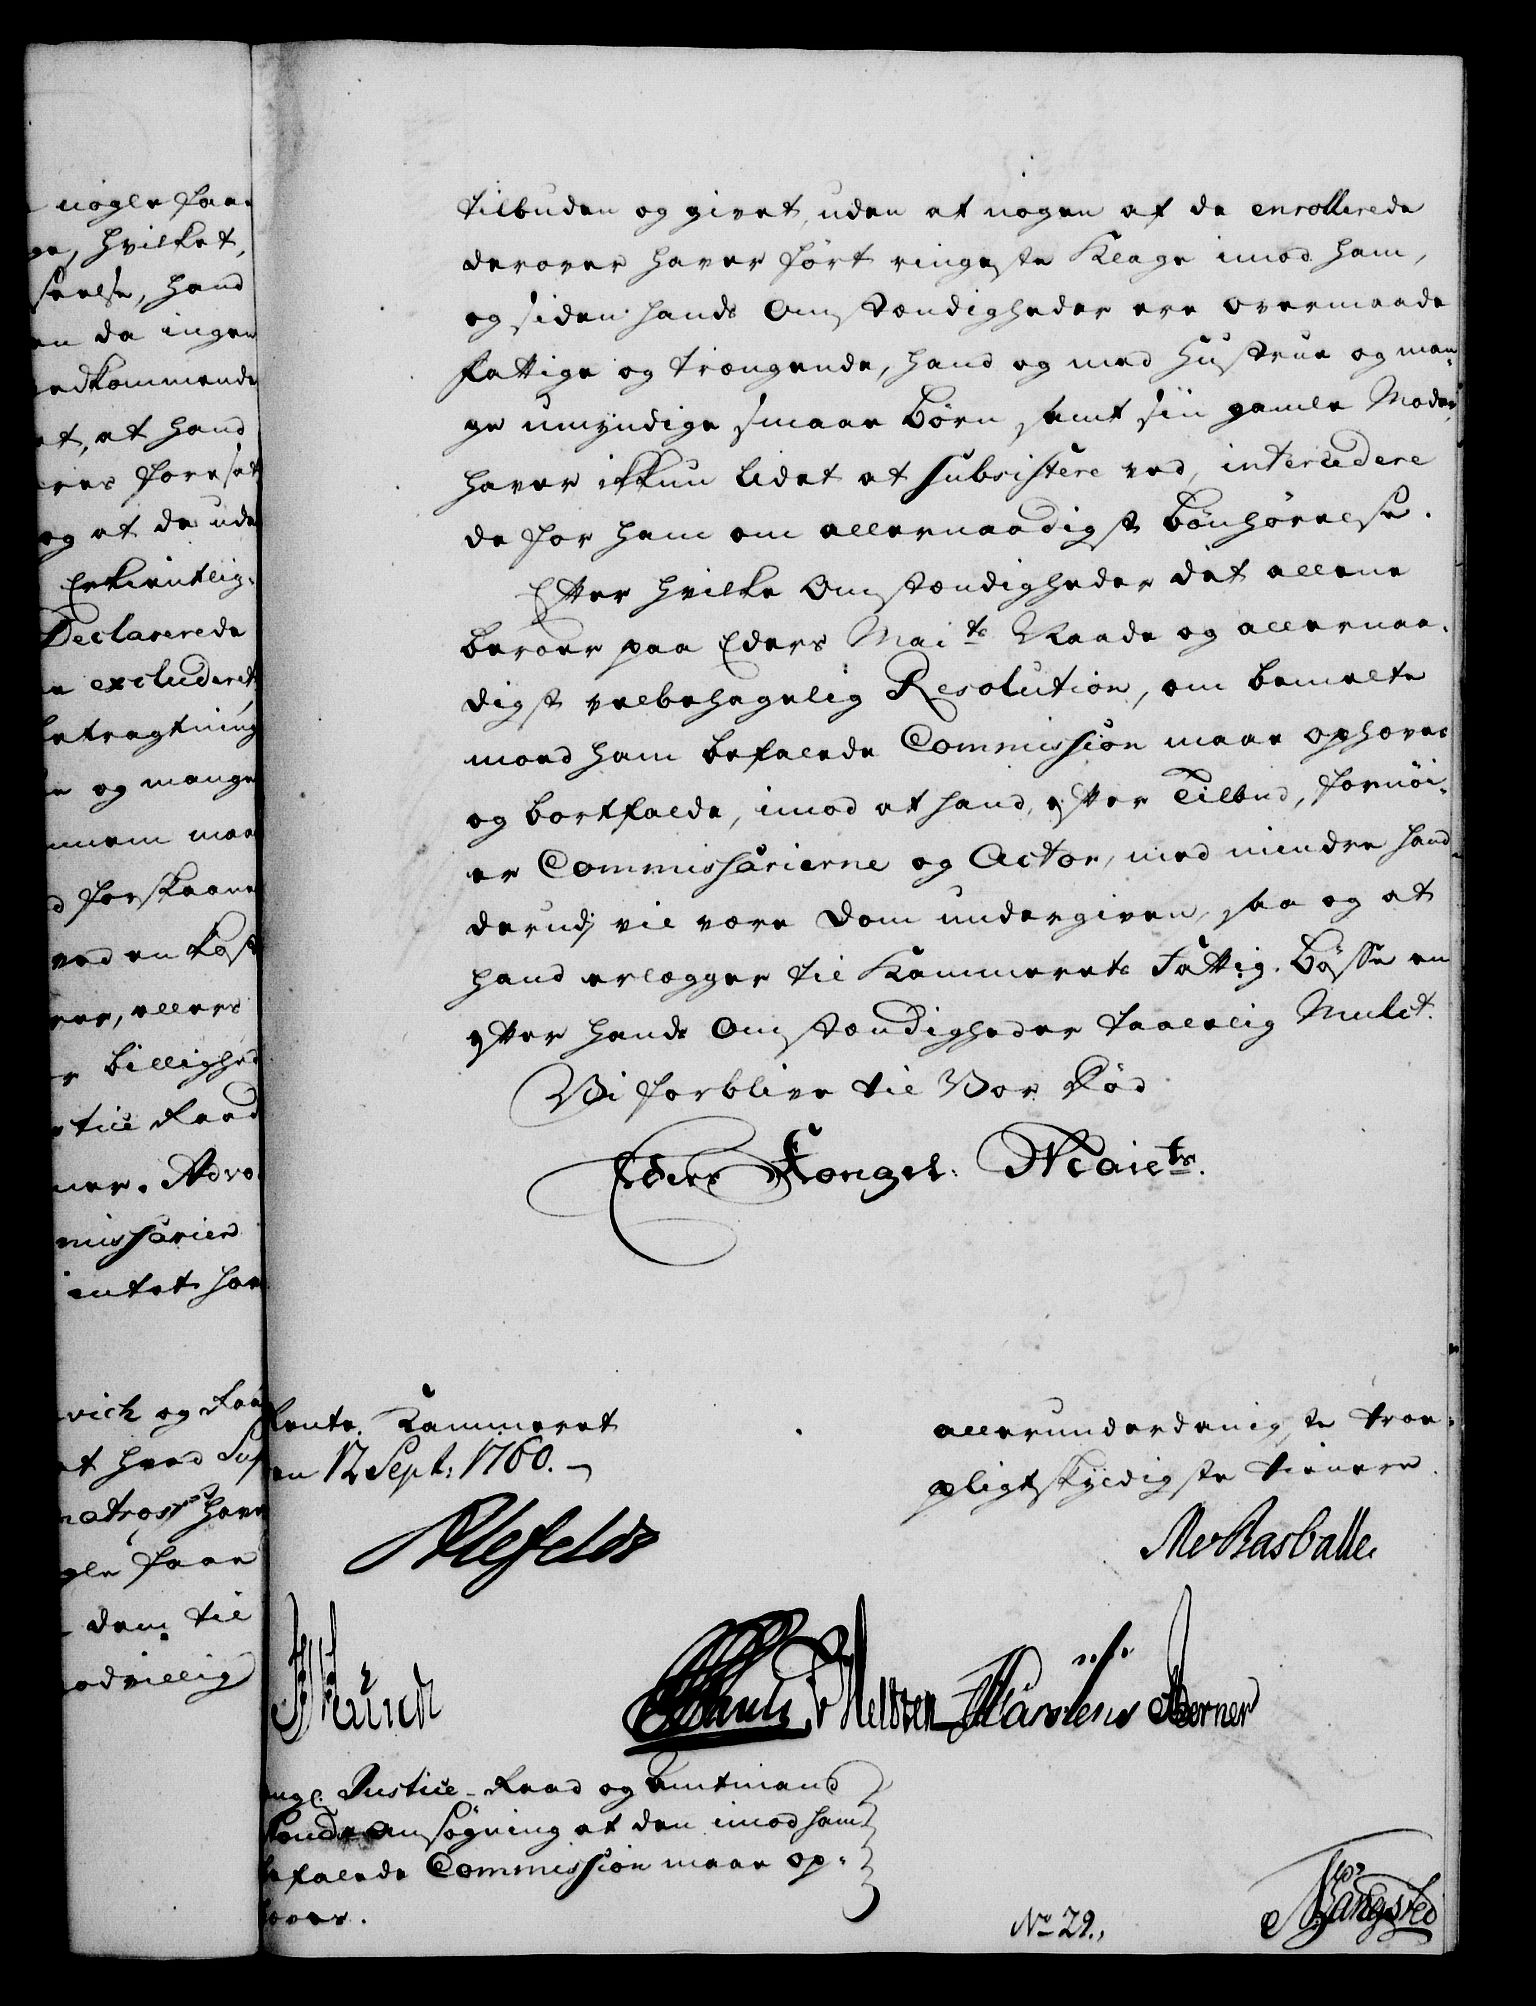 nogle faae
ge, hvilket,
seelse, hand
en da ingen
vedkommende
et, at hand
eres foresat
og at de ude
Erkientlig-
Declarerede
e excluderet
betragtning
e og mange
nnem maa
d forskaane
ved en kost
rer, ellers
r billighed
stice Raad
ner. Advo
missarier
intet har
vich og Raa
et hvad Sup
matross hav
gle faae
dem til
odvillig
tilbuden og givet, uden at nogen af de enrollerede
derover haver ført ringeste Klage imod ham,
og siden hands Omstændigheder ere overmaade
fattige og trængende, hand og med Hustrue og man-
ge umyndige smaae Børn, samt siin gamle Moder,
haver ikkun lidet at subsistere ved, intercedere
de for ham om allernaadigst bønhørelse.
Efter hvilke Omstændigheder det allene
beroer paa Eders Maits Naade og allernaa-
digst velbehagelig Resolution, om bemelte
moed ham befalede Commission maae ophæves
og bortfalde, imod at hand, efter Tilbud, fornøi-
er Commissarierne og Actor, med mindre hand
derudj vil være Dom undergiven, saa og at
hand erlægger til Kammerets Fattig-Bøsse en
efter hands Omstændigheder taalelig Mulct.
Vi forblive til Vor Død
Eders Kongel: Maiets.
Rente-Kammeret
en 12 Sept: 1760.
allerunderdanigste troe-
pligtskyldigste tienere
Alefeldt
Rasballe.
Kurck
Heltzen Marstens Berner
ngl. Justice-Raad og Amtmand
Ansøgning at den imod ham
befalede Commission maae op-
hæves.
No 29.
Bangsted